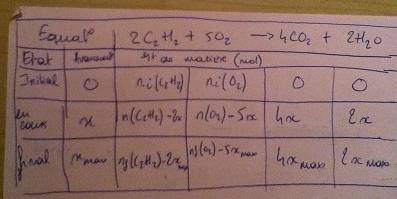 Equat° 2C₂H₂ + 5O₂ → 4CO₂ + 2H₂O
Etat Avancement Qt de matière (mol)
Initial 0 ni(C₂H₂) ni(O₂) 0 0
en cours x n(C₂H₂)-2x n(O₂)-5x 4x 2x
final xmax nf(C₂H₂)-2xmax nf(O₂)-5xmax 4xmax 2xmax